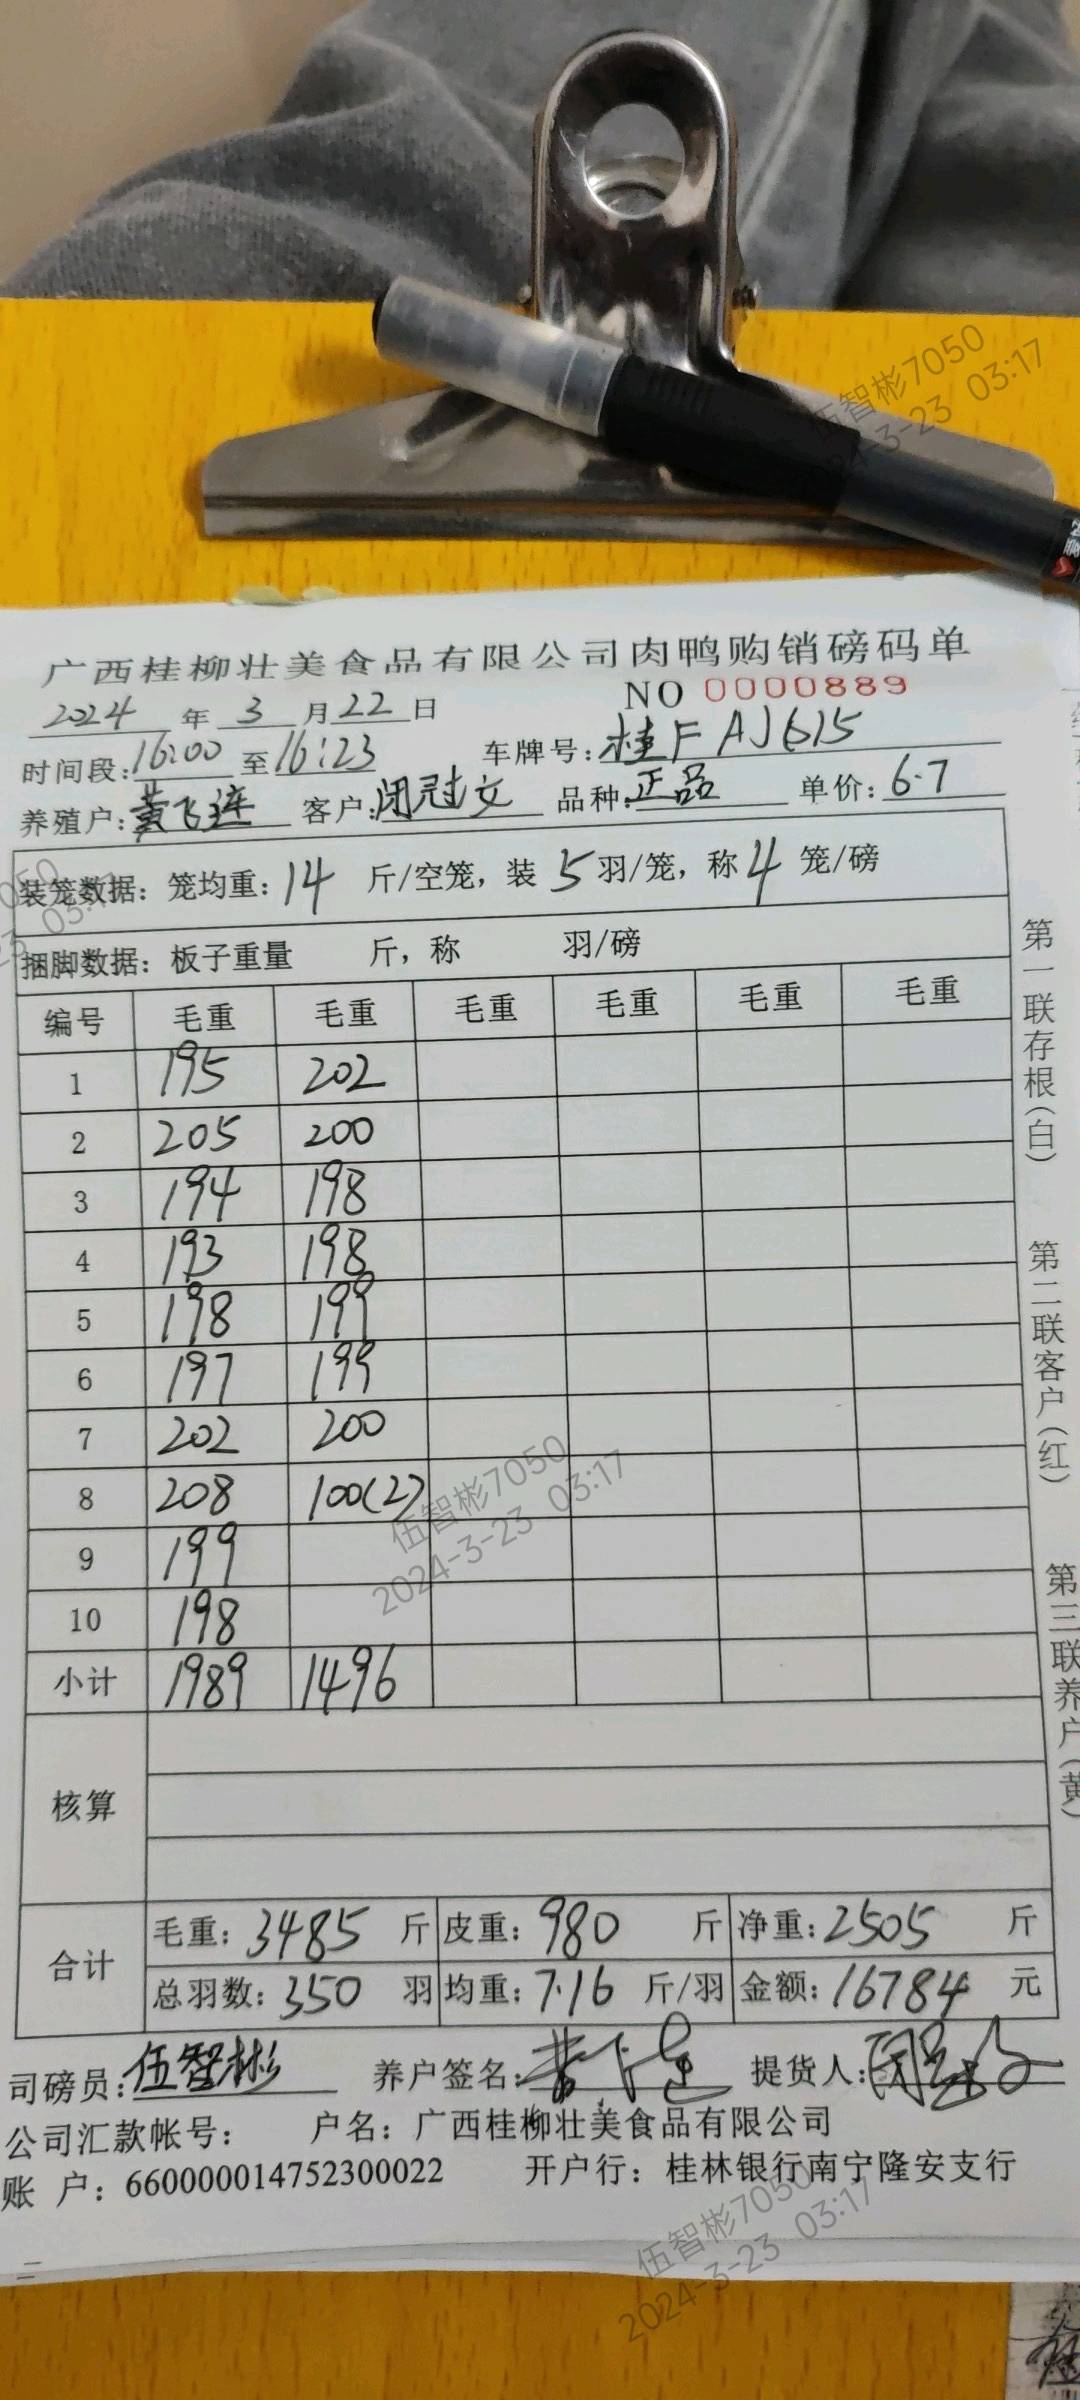 伍智彬7050
2024-3-23 03:17
广西桂柳壮美食品有限公司肉鸭购销磅码单
NO 0000889
2024 年 3 月 22 日
时间段:16:00 至 16:23 车牌号:桂FAJ615
养殖户:黄飞连 客户:闭冠文 品种:正品 单价:6.7
装笼数据:笼均重:14 斤/空笼,装 5 羽/笼,称 4 笼/磅
捆脚数据:板子重量 斤,称 羽/磅
编号 毛重 毛重 毛重 毛重 毛重 毛重
1 195 202
2 205 200
3 194 198
4 193 198
5 198 199
6 197 199
7 202 200
8 208 100(2)
9 199
10 198
小计 1989 1496
核算
合计 毛重:3485 斤 皮重:980 斤 净重:2505 斤
总羽数:350 羽 均重:7.16 斤/羽 金额:16784 元
司磅员:伍智彬 养户签名:黄飞连 提货人:闭冠文
公司汇款帐号: 户名:广西桂柳壮美食品有限公司
账 户:660000014752300022 开户行:桂林银行南宁隆安支行
第一联存根(白)
第二联客户(红)
第三联养户(黄)
伍智彬7050
2024-3-23 03:17
伍智彬7050
2024-3-23 03:17